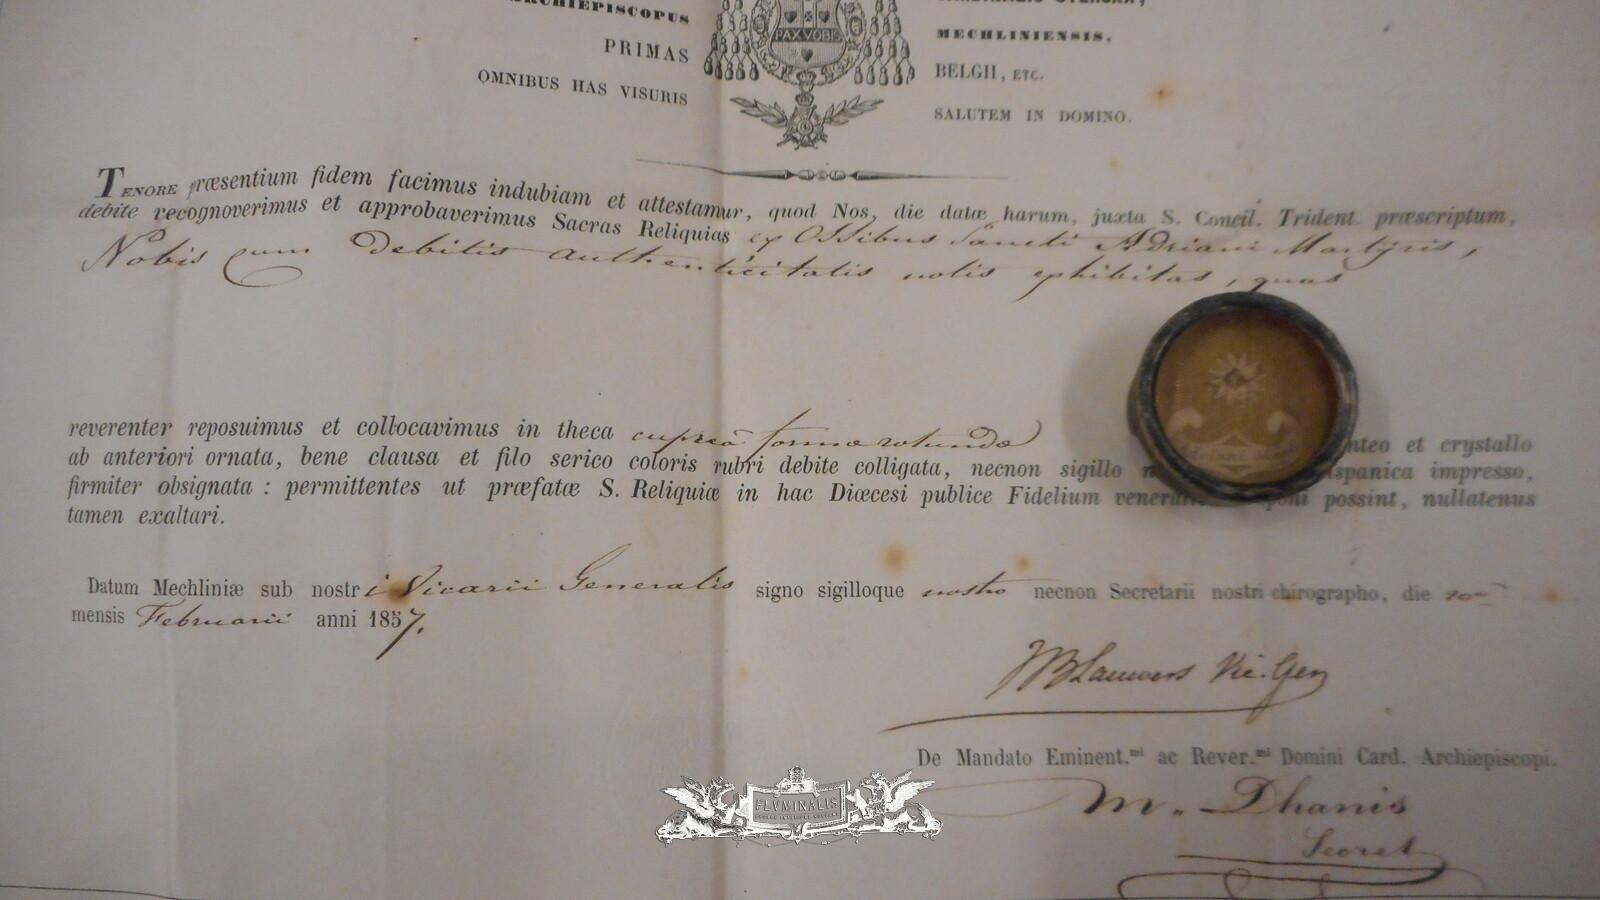 ARCHIEPISCOPUS
MECHLINIENSIS,
PRIMAS
BELGII, ETC.
OMNIBUS HAS VISURIS
SALUTEM IN DOMINO.
PAX VOBIS
TENORE præsentium fidem facimus indubiam et attestamur, quod Nos, die datæ harum, juxta S. Concil. Trident. præscriptum,
debite recognoverimus et approbaverimus Sacras Reliquias ex Ossibus Sancti Adriani Martyris,
Nobis cum debitis authenticitatis notis exhibitas, quas
reverenter reposuimus et collocavimus in theca cupreâ formæ rotundæ
nteo et crystallo
ab anteriori ornata, bene clausa et filo serico coloris rubri debite colligata, necnon sigillo
ispanica impresso,
firmiter obsignata : permittentes ut præfatæ S. Reliquiæ in hac Diœcesi publice Fidelium
possint, nullatenus
tamen exaltari.
Datum Mechliniæ sub nostri Vicarii Generalis signo sigilloque nostro necnon Secretarii nostri chirographo, die
mensis Februarii anni 1857.
JB Lauwers Vic. Gen
De Mandato Eminent.mi ac Rever.mi Domini Card. Archiepiscopi.
M. Dhanis
Secret
FLVMINALIS